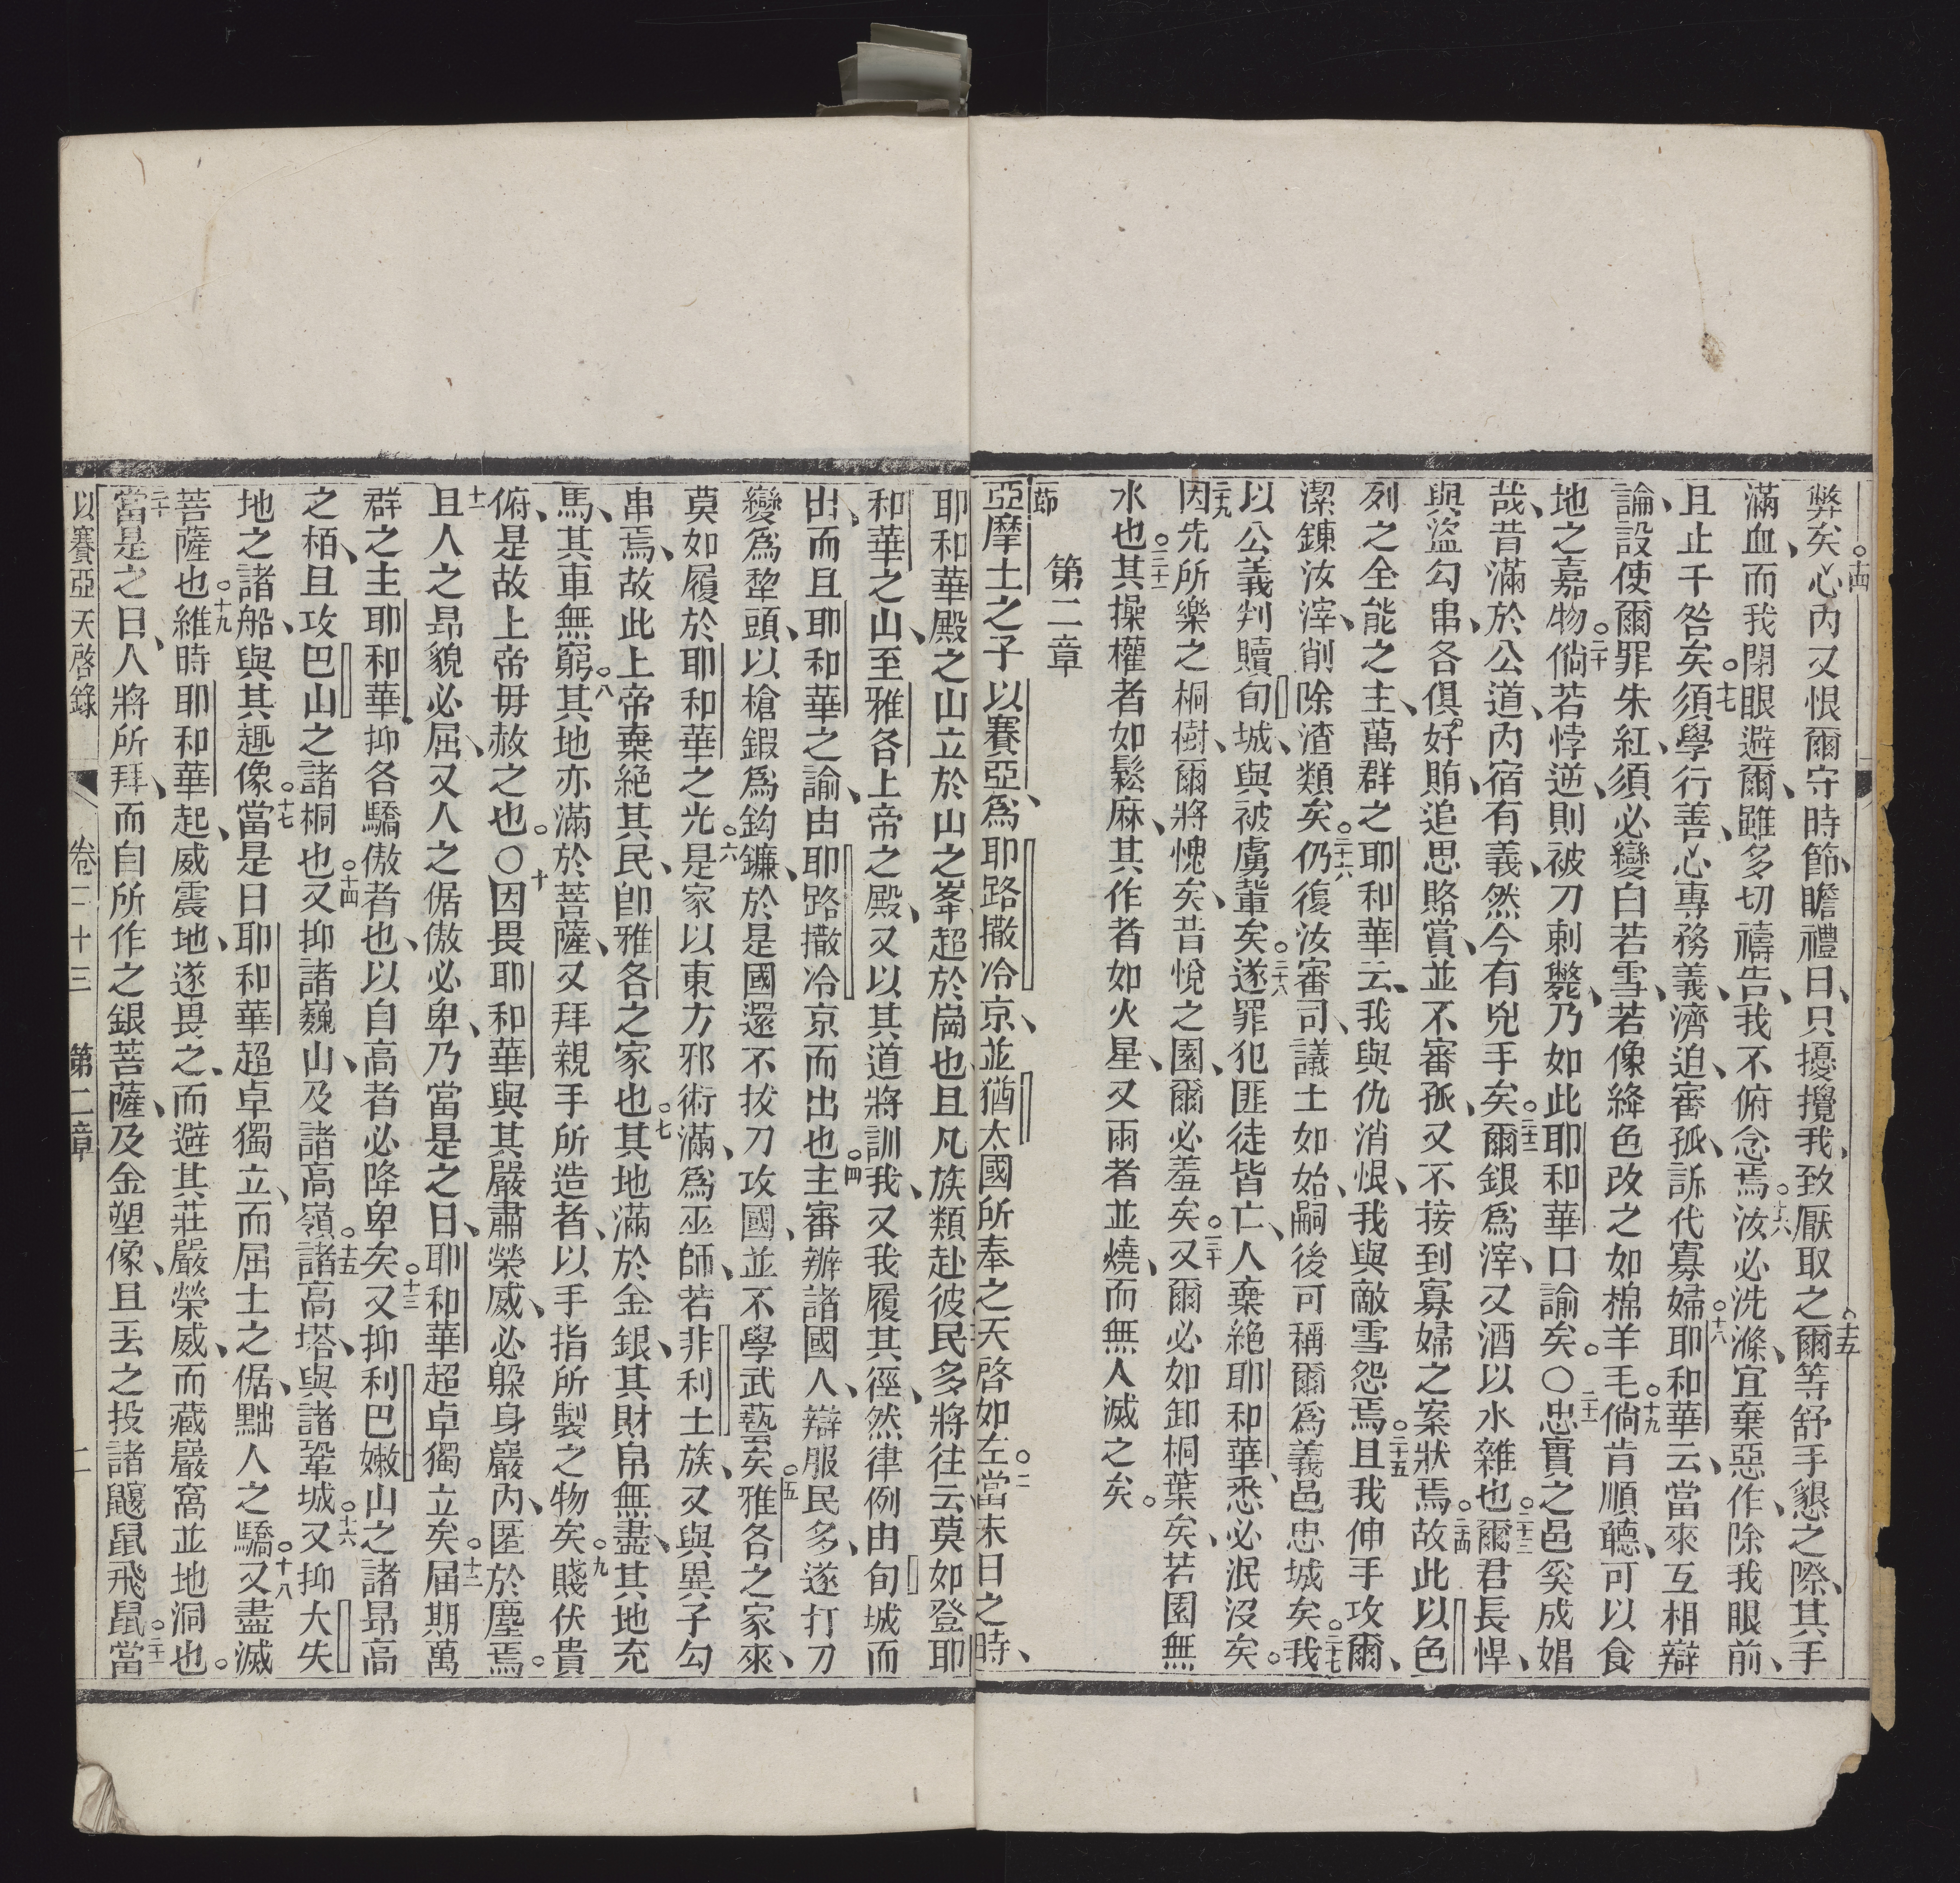 弊矣心內又恨爾守時節瞻禮日只擾攪我致厭取之爾等舒手懇之際其手
滿血而我閉眼避爾雖多切禱告我不俯念焉汝必洗滌宜棄惡作除我眼前
且止千咎矣須學行善心專務義濟迫審孤訴代寡婦耶和華云當來互相辯
論設使爾罪朱紅須必變白若雪若像絳色改之如棉羊毛倘肯順聽可以食
地之嘉物倘若悖逆則被刀刺斃乃如此耶和華口諭矣〇忠實之邑奚成娼
哉昔滿於公道內宿有義然今有兇手矣爾銀為滓又酒以水雜也爾君長悍
與盜勾串各俱好賄追思賂賞並不審孤又不接到寡婦之案狀焉故此以色
列之全能之主萬群之耶和華云我與仇消恨我與敵雪怨焉且我伸手攻爾
潔鍊汝滓削除渣類矣仍復汝審司議士如始嗣後可稱爾為義邑忠城矣我
以公義判贖旬城與被虜輩矣遂罪犯匪徒皆亡人棄絕耶和華悉必泯沒矣
因先所樂之桐樹爾將愧矣昔悅之園爾必羞矣又爾必如卸桐葉矣若園無
水也其操權者如鬆麻其作者如火星又兩者並燒而無人滅之矣
第二章
亞摩士之子以賽亞為耶路撒冷京並猶太國所奉之天啓如左當末日之時
耶和華殿之山立於山之峯超於崗也且凡族類赴彼民多將往云莫如登耶
和華之山至雅各上帝之殿又以其道將訓我又我履其徑然律例由旬城而
出而且耶和華之諭由耶路撒冷京而出也主審辦諸國人辯服民多遂打刀
變為犂頭以槍鍜為鈎鐮於是國還不拔刀攻國並不學武藝矣雅各之家來
莫如履於耶和華之光是家以東方邪術滿為巫師若非利士族又與異子勾
串焉故此上帝棄絕其民卽雅各之家也其地滿於金銀其財帛無盡其地充
馬其車無窮其地亦滿於菩薩又拜親手所造者以手指所製之物矣賤伏貴
俯是故上帝毋赦之也〇因畏耶和華與其嚴肅榮威必躲身巖內匿於塵焉
且人之昂貌必屈又人之倨傲必卑乃當是之日耶和華超卓獨立矣屆期萬
群之主耶和華抑各驕傲者也以自高者必降卑矣又抑利巴嫩山之諸昂高
之栢且攻巴山之諸桐也又抑諸巍山及諸高嶺諸高塔與諸鞏城又抑大失
地之諸船與其趣像當是日耶和華超卓獨立而屈士之倨黜人之驕又盡滅
菩薩也維時耶和華起威震地遂畏之而避其莊嚴榮威而藏巖窩並地洞也
當是之日人將所拜而自所作之銀菩薩及金塑像且丟之投諸鼴鼠飛鼠當
以賽亞天啓錄 卷二十三 第二章 二